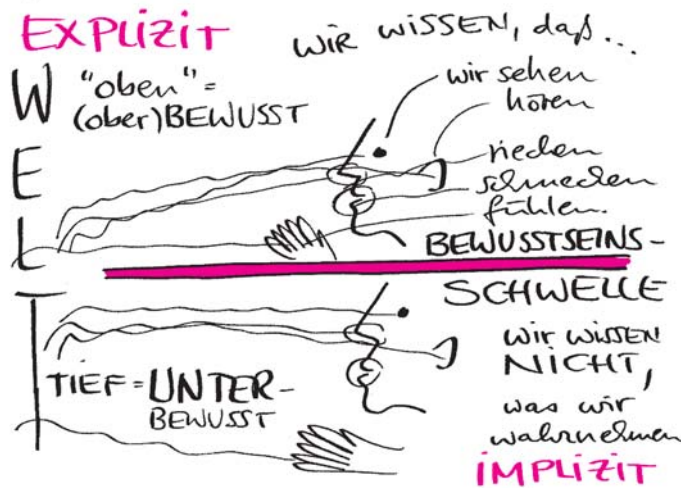 EXPLIZIT
WIR WISSEN, daß...
WELT
"oben" =
(ober)BEWUSST
wir sehen
hören
riechen
schmecken
fühlen.
BEWUSSTSEINS-
SCHWELLE
TIEF = UNTER-
BEWUSST
wir wissen
NICHT,
was wir
wahrnehmen
IMPLIZIT